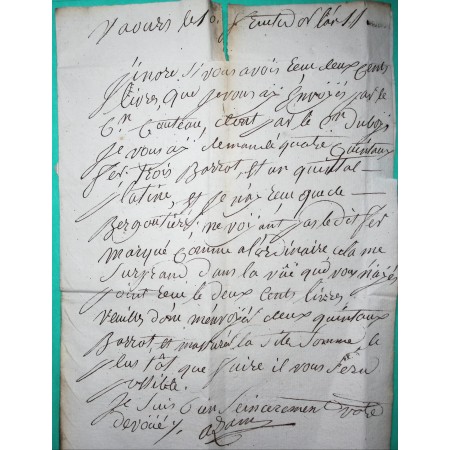 Vaours le 10 fructidor l'an 11
J'inore si vous avois reeu deux cents
livres, que je vous ai envoyés par le
Cn Couteau, dont par le Cn Dubois
je vous ai demandé quatre quintaux
fer trois Barrot, et un quintal
platine, et je n'ay reeu que de
ne voyant pas le dit fer
marqué comme a l'ordinaire cela me
surprand dans la vüe que vous n'ayés
point reeu le deux cents livres
veuilés donc m'envoyés deux quintaux
Barrot, et la dite somme le
plus tôt que faire il vous sera
possible.
Je suis bien seincerement votre
devoué